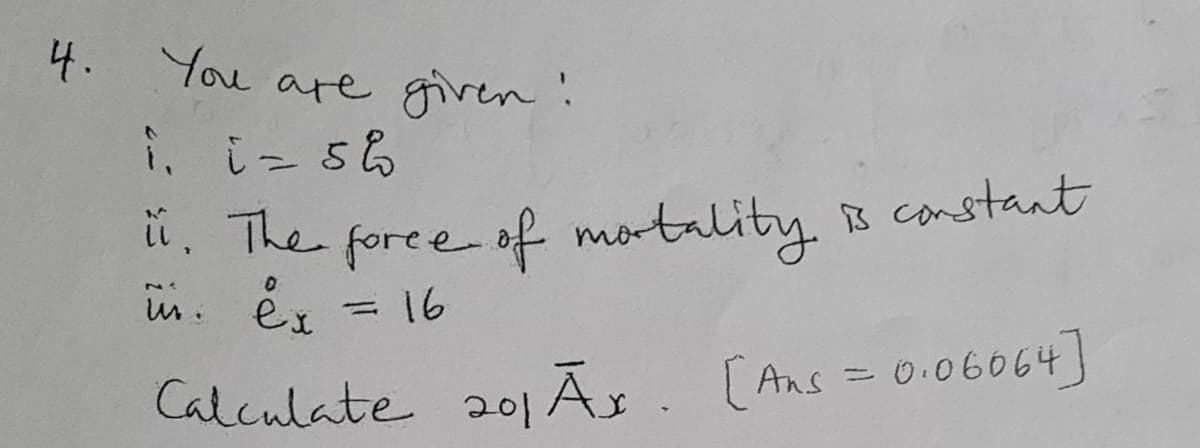 4. You are given :
i. i = 5%
ii. The force of mortality is constant
iii. e̊x = 16
Calculate 20| Āx . [Ans = 0.06064]